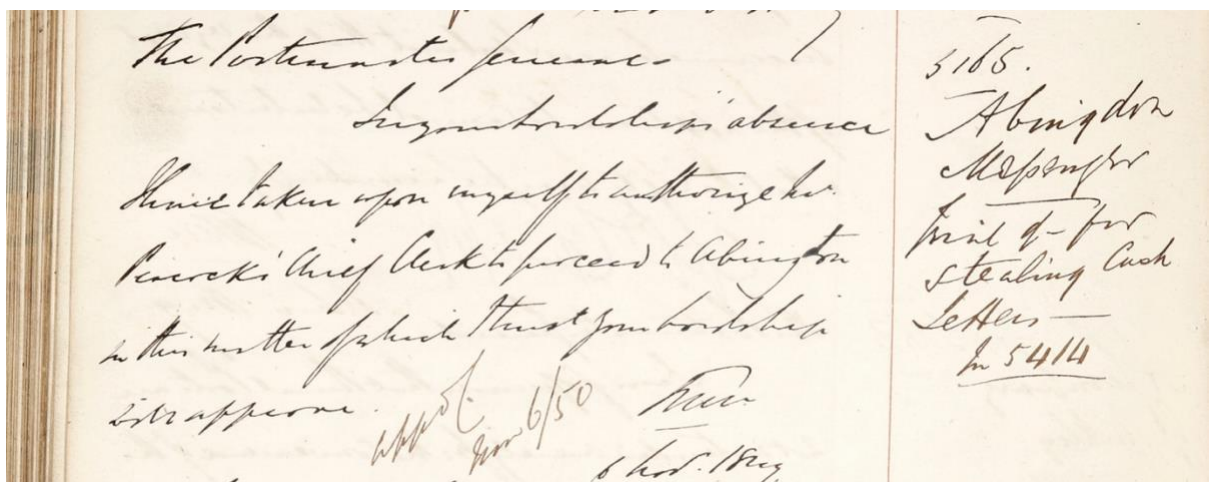 The Postmaster General
In your Lordship's absence
I have taken upon myself to authorize Mr.
Peacock's Chief Clerk to proceed to Abington
in this matter of which I trust your Lordship
will approve.
appd.
6/50
6 Nov.
5165.
Abingdon
Messenger
Trial of - for
stealing Cash
Letters —
In 5414